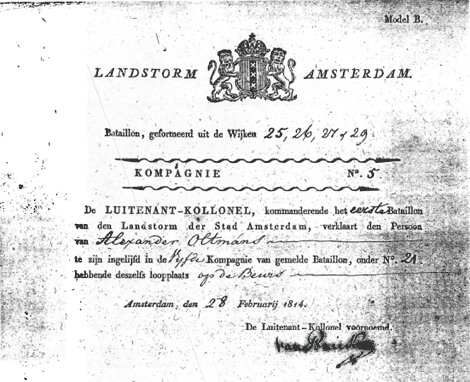 Model B.
LANDSTORM AMSTERDAM.
Bataillon, geformeerd uit de Wijken 25, 26, 27 & 29.
KOMPAGNIE N°. 5
De LUITENANT-KOLLONEL, kommanderende het eerste Bataillon
van den Landstorm der Stad Amsterdam, verklaart den Persoon
van Alexander Oltmans
te zijn ingelijfd in de Vyfde Kompagnie van gemelde Bataillon, onder N°. 21
hebbende deszelfs loopplaats op de Beurs
Amsterdam, den 28 Februarij 1814.
De Luitenant-Kollonel voornoemd.